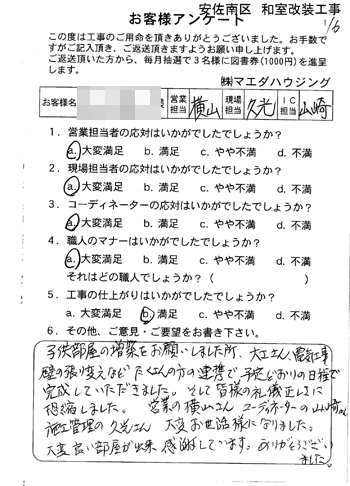 安佐南区 和室改装工事
お客様アンケート
1/6
この度は工事のご用命を頂きありがとうございました。お手数で
すがご記入頂き、ご返送頂きますようお願い申し上げます。
ご返送頂いた方から、毎月抽選で3名様に図書券(1000円)を進呈
します。
㈱マエダハウジング
お客様名 様 営業担当 横山 現場担当 久光 IC担当 山崎
1．営業担当者の応対はいかがでしたでしょうか？
a. 大変満足 b. 満足 c. やや不満 d. 不満
2．現場担当者の応対はいかがでしたでしょうか？
a. 大変満足 b. 満足 c. やや不満 d. 不満
3．コーディネーターの応対はいかがでしたでしょうか？
a. 大変満足 b. 満足 c. やや不満 d. 不満
4．職人のマナーはいかがでしたでしょうか？
a. 大変満足 b. 満足 c. やや不満 d. 不満
それはどの職人でしょうか？（ ）
5．工事の仕上がりはいかがでしたでしょうか？
a. 大変満足 b. 満足 c. やや不満 d. 不満
6．その他、ご意見・ご要望をお書き下さい。
子供部屋の増築をお願いしました所、大工さん、電気工事
壁の張り変えなど たくさんの方の連携で予定どおりの日程で
完成していただきました。そして皆様の礼儀正しさに
感激しました。 営業の横山さん コーディネーターの山崎さん
施工管理の久光さん 大変お世話になりました。
大変良い部屋が出来 感謝しています。ありがとうござい
ました。